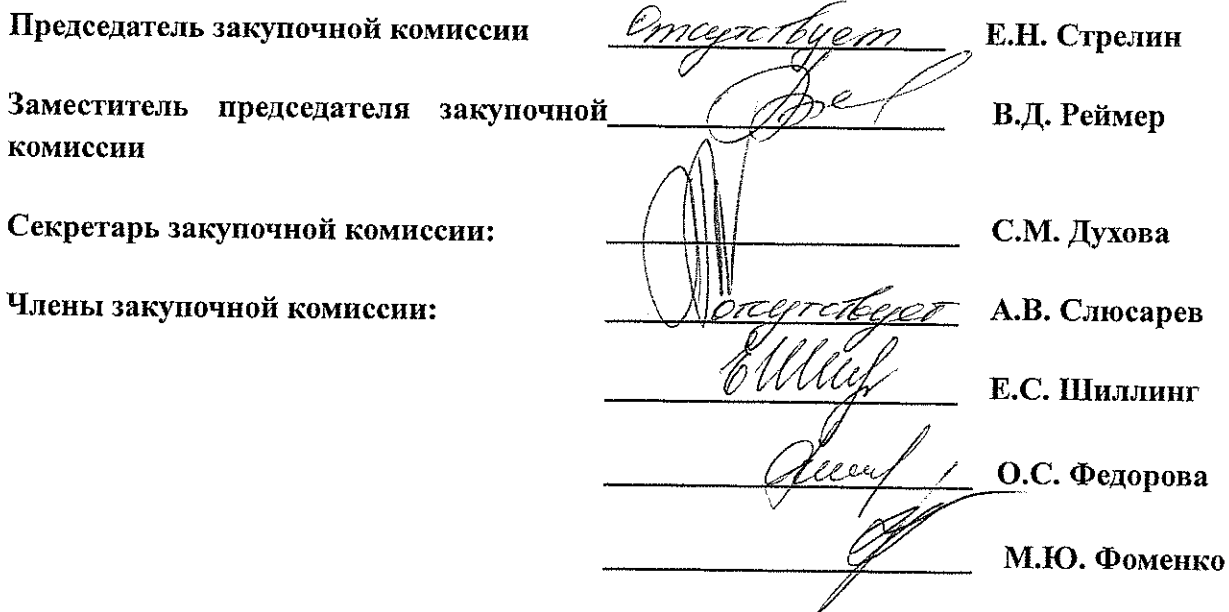 Председатель закупочной комиссии Отсутствует Е.Н. Стрелин
Заместитель председателя закупочной В.Д. Реймер
комиссии
Секретарь закупочной комиссии: С.М. Духова
Члены закупочной комиссии: отсутствует А.В. Слюсарев
Е.С. Шиллинг
О.С. Федорова
М.Ю. Фоменко